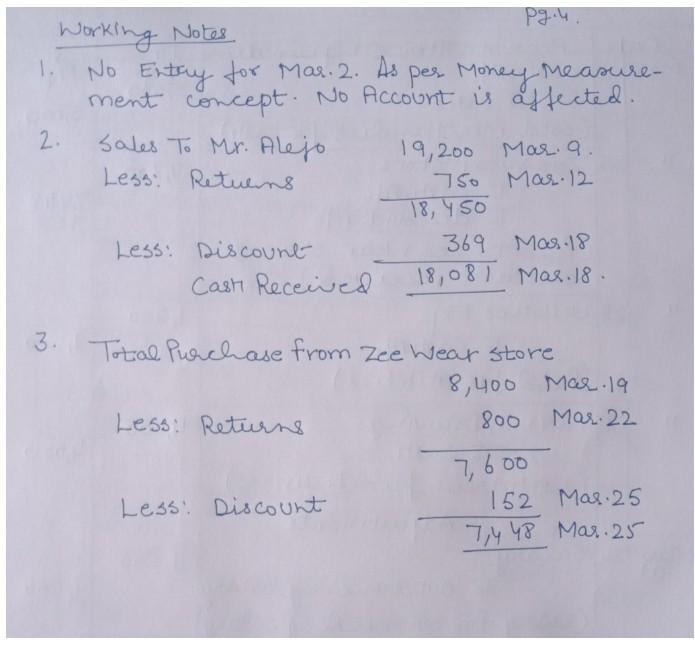 Pg.4.
Working Notes
1. No Entry for Mar.2. As per Money Measure-
ment concept. No Account is affected.
2. Sales To Mr. Alejo 19,200 Mar.9.
Less: Returns 750 Mar.12
18,450
Less: Discount 369 Mar.18
Cash Received 18,081 Mar.18.
3. Total Purchase from Zee Wear Store
8,400 Mar.19
Less: Returns 800 Mar.22
7,600
Less: Discount 152 Mar.25
7,448 Mar.25